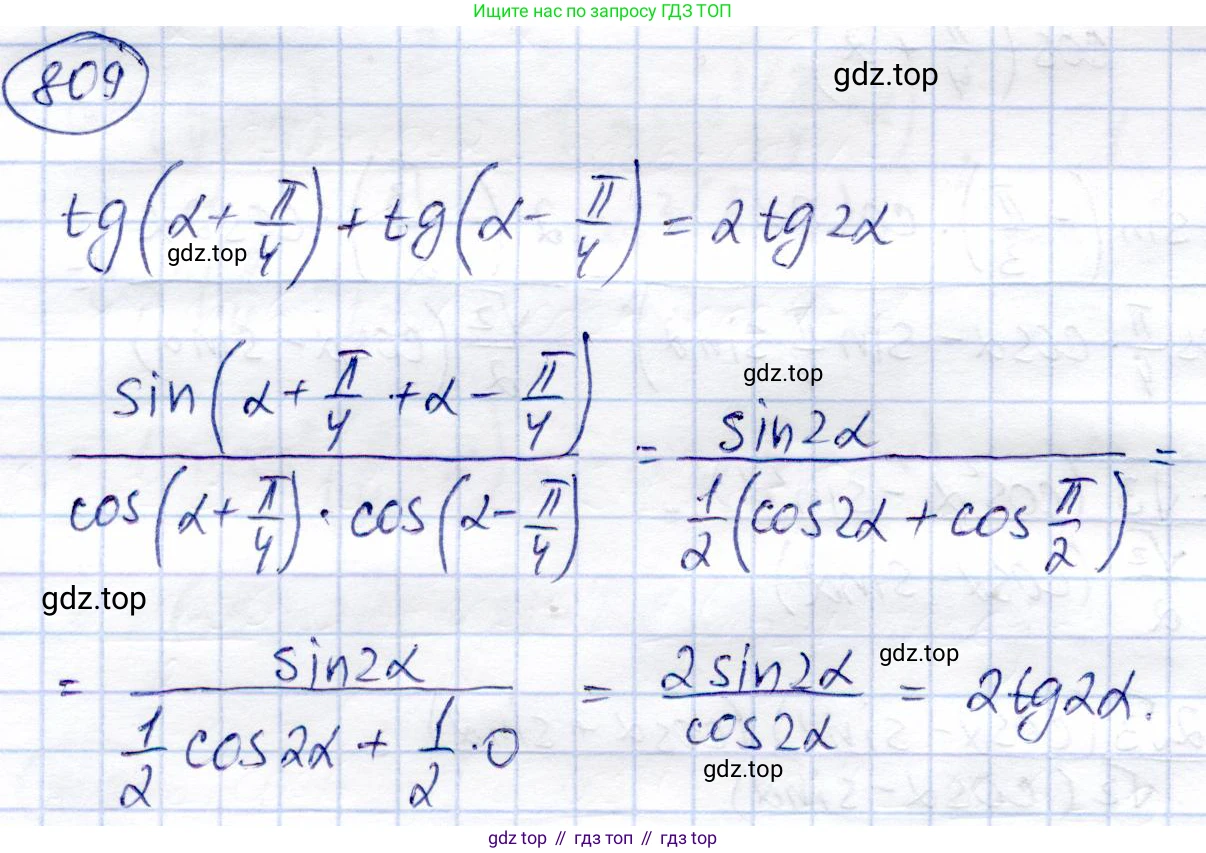 Ищите нас по запросу ГДЗ ТОП
809
gdz.top
tg(α + π/4) + tg(α - π/4) = 2 tg 2α
gdz.top
gdz.top
sin(α + π/4 + α - π/4) / cos(α + π/4) · cos(α - π/4) = sin2α / 1/2 (cos2α + cos π/2) =
gdz.top
= sin2α / 1/2 cos2α + 1/2 · 0 = 2 sin2α / cos2α = 2tg2α.
gdz.top
gdz.top
gdz top // гдз топ // гдз top